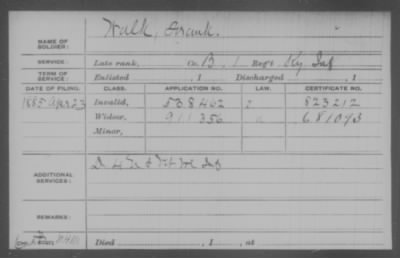 NAME OF SOLDIER: Walk, Frank.
SERVICE: Late rank, Co. B, 1 Reg't Ky Inf
TERM OF SERVICE: Enlisted , 1 Discharged , 1
DATE OF FILING. CLASS. APPLICATION NO. LAW. CERTIFICATE NO.
1885 Apr 23 Invalid, 538462 823212
Widow, 911356 681073
Minor,
ADDITIONAL SERVICES: D 4 & Inf
REMARKS:
Died , 1 , at